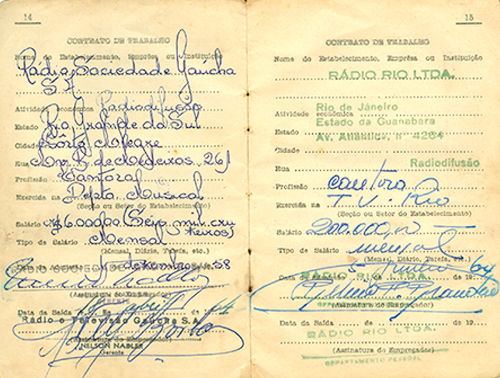 14
CONTRATO DE TRABALHO
Nome do Estabelecimento, Emprêsa ou Instituição
Rádio Sociedade Gaúcha
S.A.
Atividade econômica Radiodifusora
Estado Rio Grande do Sul
Cidade Porto Alegre
Rua R. dos Andradas 261
Profissão Cantora
Exercida na Depto Musical
(Seção ou Setor do Estabelecimento)
Salário 6.000,00 Seis mil cru
zeiros
Tipo de Salário Mensal
(Mensal, Diário, Tarefa, etc.)
dezembro 58
(Assinatura do Empregador)
Data da Saída
Rádio e Televisão Gaúcha S.A.
NELSON NABLER
Gerente
15
CONTRATO DE TRABALHO
Nome do Estabelecimento, Emprêsa ou Instituição
RÁDIO RIO LTDA.
Rio de Janeiro
Atividade econômica
Estado da Guanabara
Estado
Av. Atlântica, nº 4264
Cidade
Radiodifusão
Rua
Profissão cantora
Exercida na T.V. Rio
(Seção ou Setor do Estabelecimento)
Salário 200.000,00
Tipo de Salário mensal
(Mensal, Diário, Tarefa, etc.)
64
RÁDIO RIO LTDA.
(Assinatura do Empregador)
Data da Saída de de 19
RÁDIO RIO LTDA.
(Assinatura do Empregador)
DEPARTAMENTO PESSOAL